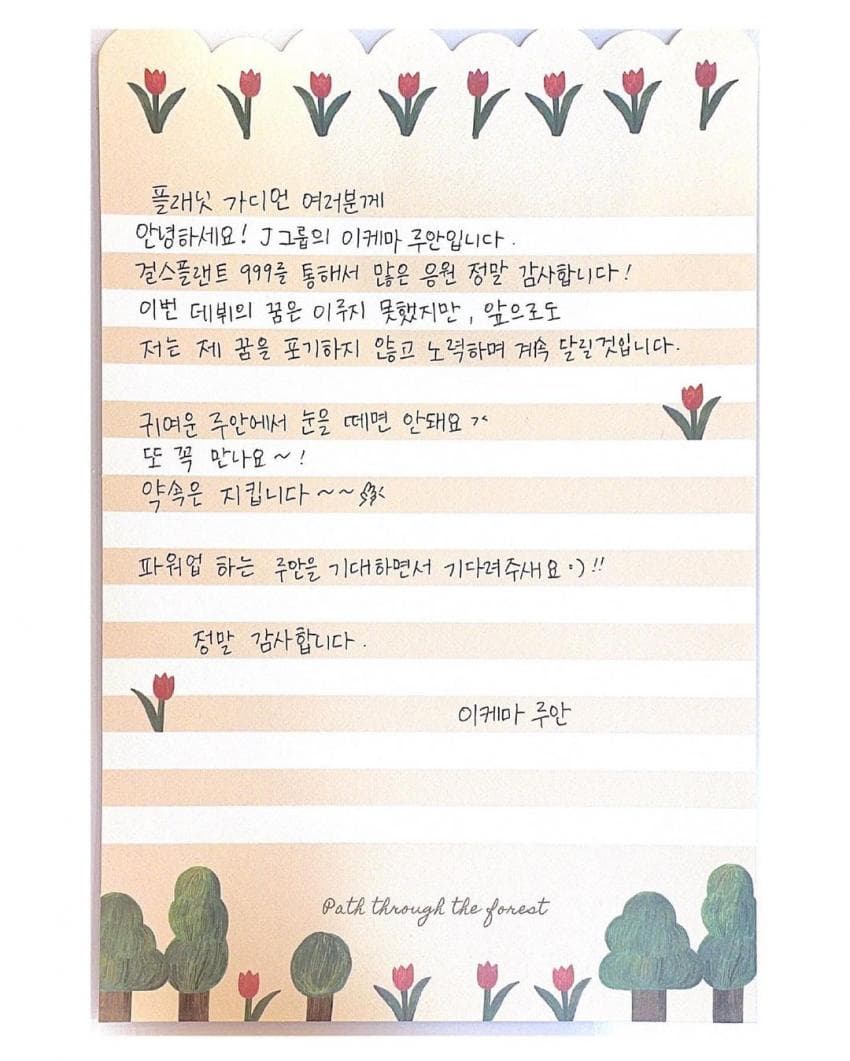 플래닛 가디언 여러분께
안녕하세요! J그룹의 이케마 루안입니다.
걸스플랜트 999를 통해서 많은 응원 정말 감사합니다!
이번 데뷔의 꿈은 이루지 못했지만, 앞으로도
저는 제 꿈을 포기하지 않고 노력하며 계속 달릴것입니다.
귀여운 루안에서 눈을 떼면 안돼요 ㅋ
또 꼭 만나요~!
약속은 지킵니다~~
파워업 하는 루안을 기대하면서 기다려주새요 :)!!
정말 감사합니다.
이케마 루안
Path through the forest